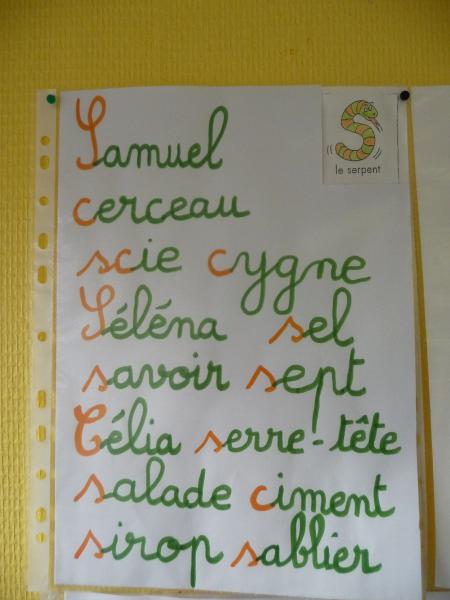 Samuel
le serpent
cerceau
scie cygne
Séléna sel
savoir sept
Célia serre-tête
salade ciment
sirop sablier